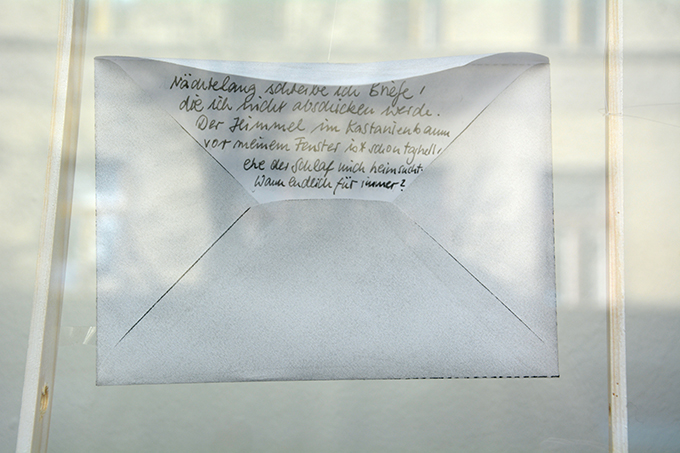 Nächtelang schreibe ich Briefe,
die ich nicht abschicken werde.
Der Himmel im Kastanienbaum
vor meinem Fenster ist schon taghell,
ehe der Schlaf mich heimsucht.
Wann endlich für immer?